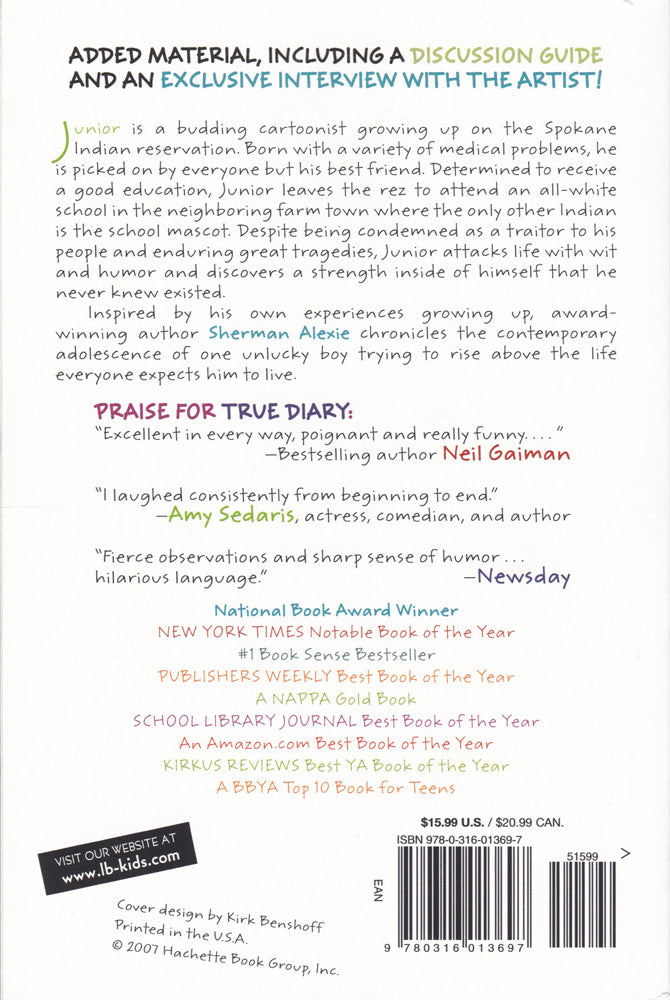 ADDED MATERIAL, INCLUDING A DISCUSSION GUIDE
AND AN EXCLUSIVE INTERVIEW WITH THE ARTIST!
Junior is a budding cartoonist growing up on the Spokane
Indian reservation. Born with a variety of medical problems, he
is picked on by everyone but his best friend. Determined to receive
a good education, Junior leaves the rez to attend an all-white
school in the neighboring farm town where the only other Indian
is the school mascot. Despite being condemned as a traitor to his
people and enduring great tragedies, Junior attacks life with wit
and humor and discovers a strength inside of himself that he
never knew existed.
Inspired by his own experiences growing up, award-
winning author Sherman Alexie chronicles the contemporary
adolescence of one unlucky boy trying to rise above the life
everyone expects him to live.
PRAISE FOR TRUE DIARY:
"Excellent in every way, poignant and really funny. . . . "
—Bestselling author Neil Gaiman
"I laughed consistently from beginning to end."
—Amy Sedaris, actress, comedian, and author
"Fierce observations and sharp sense of humor . . .
hilarious language." —Newsday
National Book Award Winner
NEW YORK TIMES Notable Book of the Year
#1 Book Sense Bestseller
PUBLISHERS WEEKLY Best Book of the Year
A NAPPA Gold Book
SCHOOL LIBRARY JOURNAL Best Book of the Year
An Amazon.com Best Book of the Year
KIRKUS REVIEWS Best YA Book of the Year
A BBYA Top 10 Book for Teens
VISIT OUR WEBSITE AT
www.lb-kids.com
Cover design by Kirk Benshoff
Printed in the U.S.A.
© 2007 Hachette Book Group, Inc.
$15.99 U.S. / $20.99 CAN.
ISBN 978-0-316-01369-7
51599 >
EAN
9 780316 013697